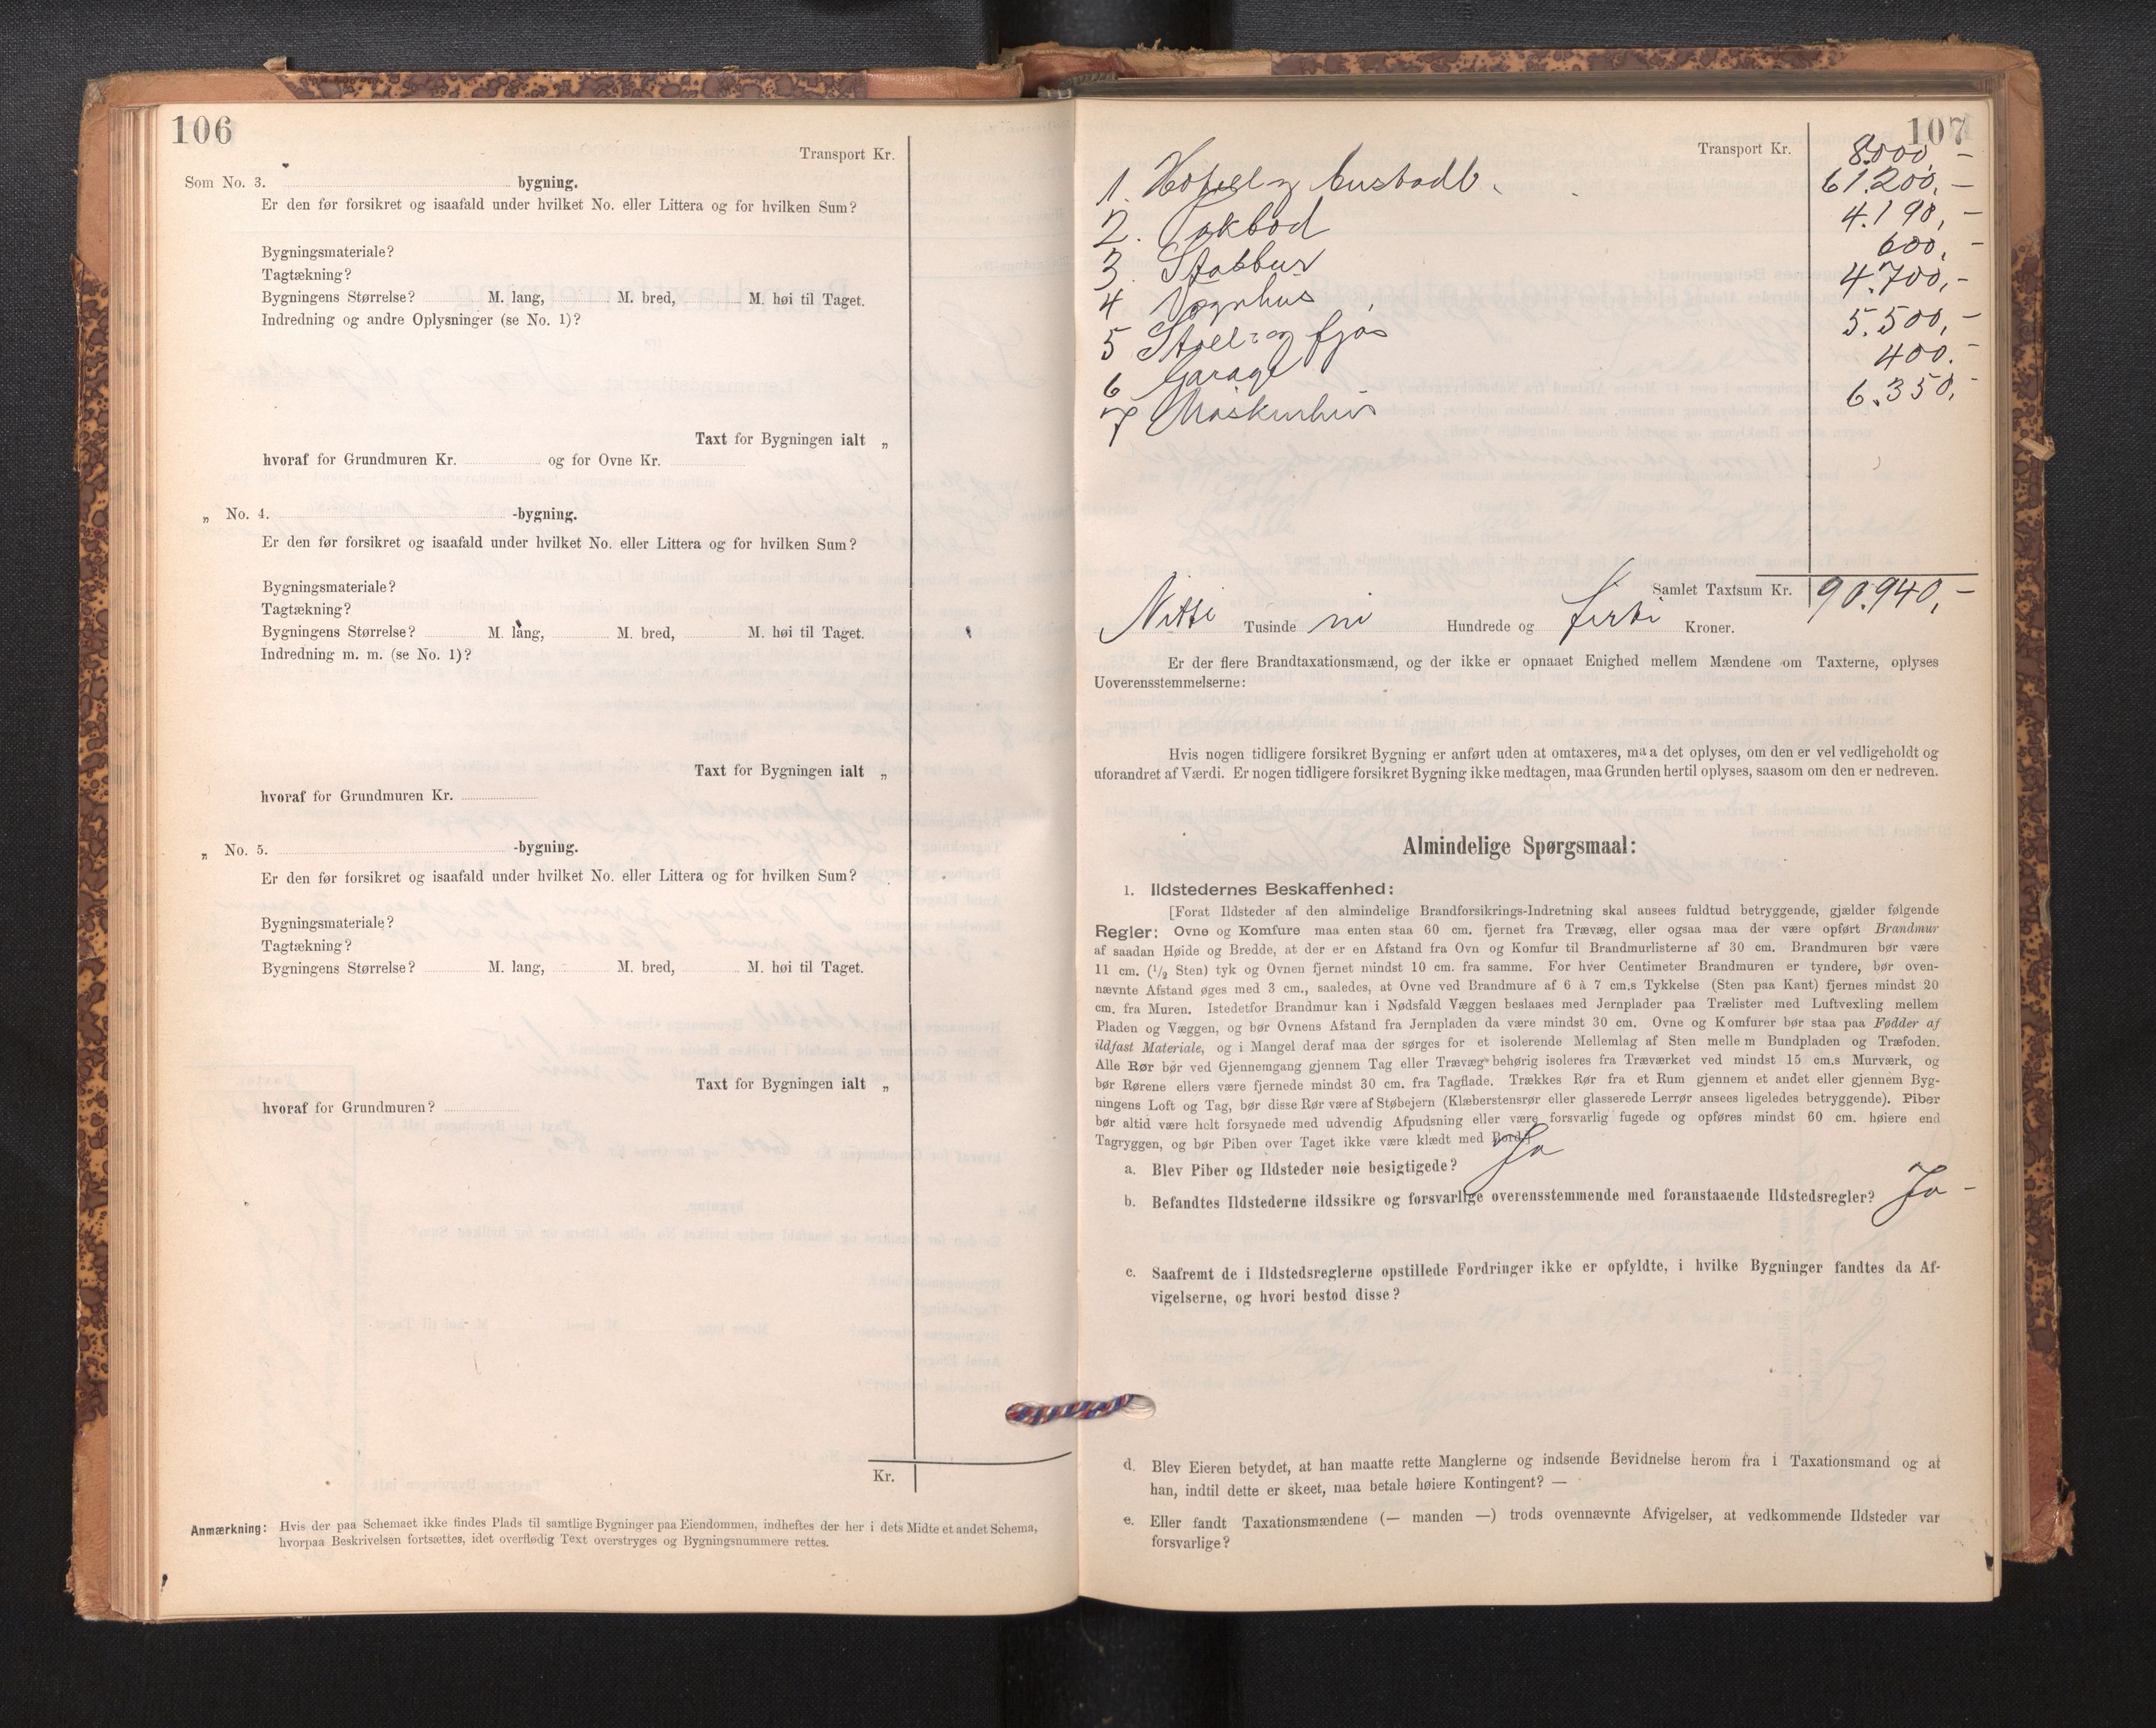 106
Transport Kr.
Som No. 3. bygning.
Er den før forsikret og isaafald under hvilket No. eller Littera og for hvilken Sum?
Bygningsmateriale?
Tagtækning?
Bygningens Størrelse? M. lang, M. bred, M. høi til Taget.
Indredning og andre Oplysninger (se No. 1)?
Taxt for Bygningen ialt „
hvoraf for Grundmuren Kr. og for Ovne Kr.
„ No. 4. -bygning.
Er den før forsikret og isaafald under hvilket No. eller Littera og for hvilken Sum?
Bygningsmateriale?
Tagtækning?
Bygningens Størrelse? M. lang, M. bred, M. høi til Taget.
Indredning m. m. (se No. 1)?
Taxt for Bygningen ialt „
hvoraf for Grundmuren Kr.
„ No. 5. -bygning.
Er den før forsikret og isaafald under hvilket No. eller Littera og for hvilken Sum?
Bygningsmateriale?
Tagtækning?
Bygningens Størrelse? M. lang, M. bred, M. høi til Taget.
Taxt for Bygningen ialt „
hvoraf for Grundmuren?
Kr.
Anmærkning: Hvis der paa Schemaet ikke findes Plads til samtlige Bygninger paa Eiendommen, indheftes der her i dets Midte et andet Schema,
hvorpaa Beskrivelsen fortsættes, idet overflødig Text overstryges og Bygningsnummere rettes.
107
Transport Kr. 8.000,-
1. Hotel og 61.200,-
2. 4.190,-
3. Stabbur 600,-
4 Vognhus 4.700,-
5 Stall= og fjøs 5.500,-
6 Garage 400.-
7 Maskinhus 6.350,-
Samlet Taxtsum Kr. 90.940,-
Nitti Tusinde ni Hundrede og førti Kroner.
Er der flere Brandtaxationsmænd, og der ikke er opnaaet Enighed mellem Mændene om Taxterne, oplyses
Uoverensstemmelserne:
Hvis nogen tidligere forsikret Bygning er anført uden at omtaxeres, maa det oplyses, om den er vel vedligeholdt og
uforandret af Værdi. Er nogen tidligere forsikret Bygning ikke medtagen, maa Grunden hertil oplyses, saasom om den er nedreven.
Almindelige Spørgsmaal:
1. Ildstedernes Beskaffenhed:
[Forat Ildsteder af den almindelige Brandforsikrings-Indretning skal ansees fuldtud betryggende, gjælder følgende
Regler: Ovne og Komfure maa enten staa 60 cm. fjernet fra Trævæg, eller ogsaa maa der være opført Brandmur
af saadan Høide og Bredde, at der er en Afstand fra Ovn og Komfur til Brandmurlisterne af 30 cm. Brandmuren bør være
11 cm. (1/2 Sten) tyk og Ovnen fjernet mindst 10 cm. fra samme. For hver Centimeter Brandmuren er tyndere, bør oven-
nævnte Afstand øges med 3 cm., saaledes, at Ovne ved Brandmure af 6 à 7 cm.s Tykkelse (Sten paa Kant) fjernes mindst 20
cm. fra Muren. Istedetfor Brandmur kan i Nødsfald Væggen beslaaes med Jernplader paa Trælister med Luftvexling mellem
Pladen og Væggen, og bør Ovnens Afstand fra Jernpladen da være mindst 30 cm. Ovne og Komfurer bør staa paa Fødder af
ildfast Materiale, og i Mangel deraf maa der sørges for et isolerende Mellemlag af Sten mellem Bundpladen og Træfoden.
Alle Rør bør ved Gjennemgang gjennem Tag eller Trævæg behørig isoleres fra Træværket ved mindst 15 cm.s Murværk, og
bør Rørene ellers være fjernede mindst 30 cm. fra Tagflade. Trækkes Rør fra et Rum gjennem et andet eller gjennem Byg-
ningens Loft og Tag, bør disse Rør være af Støbejern (Klæberstensrør eller glasserede Lerrør ansees ligeledes betryggende). Piber
bør altid være helt forsynede med udvendig Afpudsning eller være forsvarlig fugede og opføres mindst 60 cm. høiere end
Tagryggen, og bør Piben over Taget ikke være klædt med Bord.]
a. Blev Piber og Ildsteder nøie besigtigede? Ja
b. Befandtes Ildstederne ildssikre og forsvarlige overensstemmende med foranstaaende Ildstedsregler? Ja -
c. Saafremt de i Ildstedsreglerne opstillede Fordringer ikke er opfyldte, i hvilke Bygninger fandtes da Af-
vigelserne, og hvori bestod disse?
d. Blev Eieren betydet, at han maatte rette Manglerne og indsende Bevidnelse herom fra i Taxationsmand og at
han, indtil dette er skeet, maa betale høiere Kontingent? —
e. Eller fandt Taxationsmændene (— manden —) trods ovennævnte Afvigelser, at vedkommende Ildsteder var
forsvarlige?